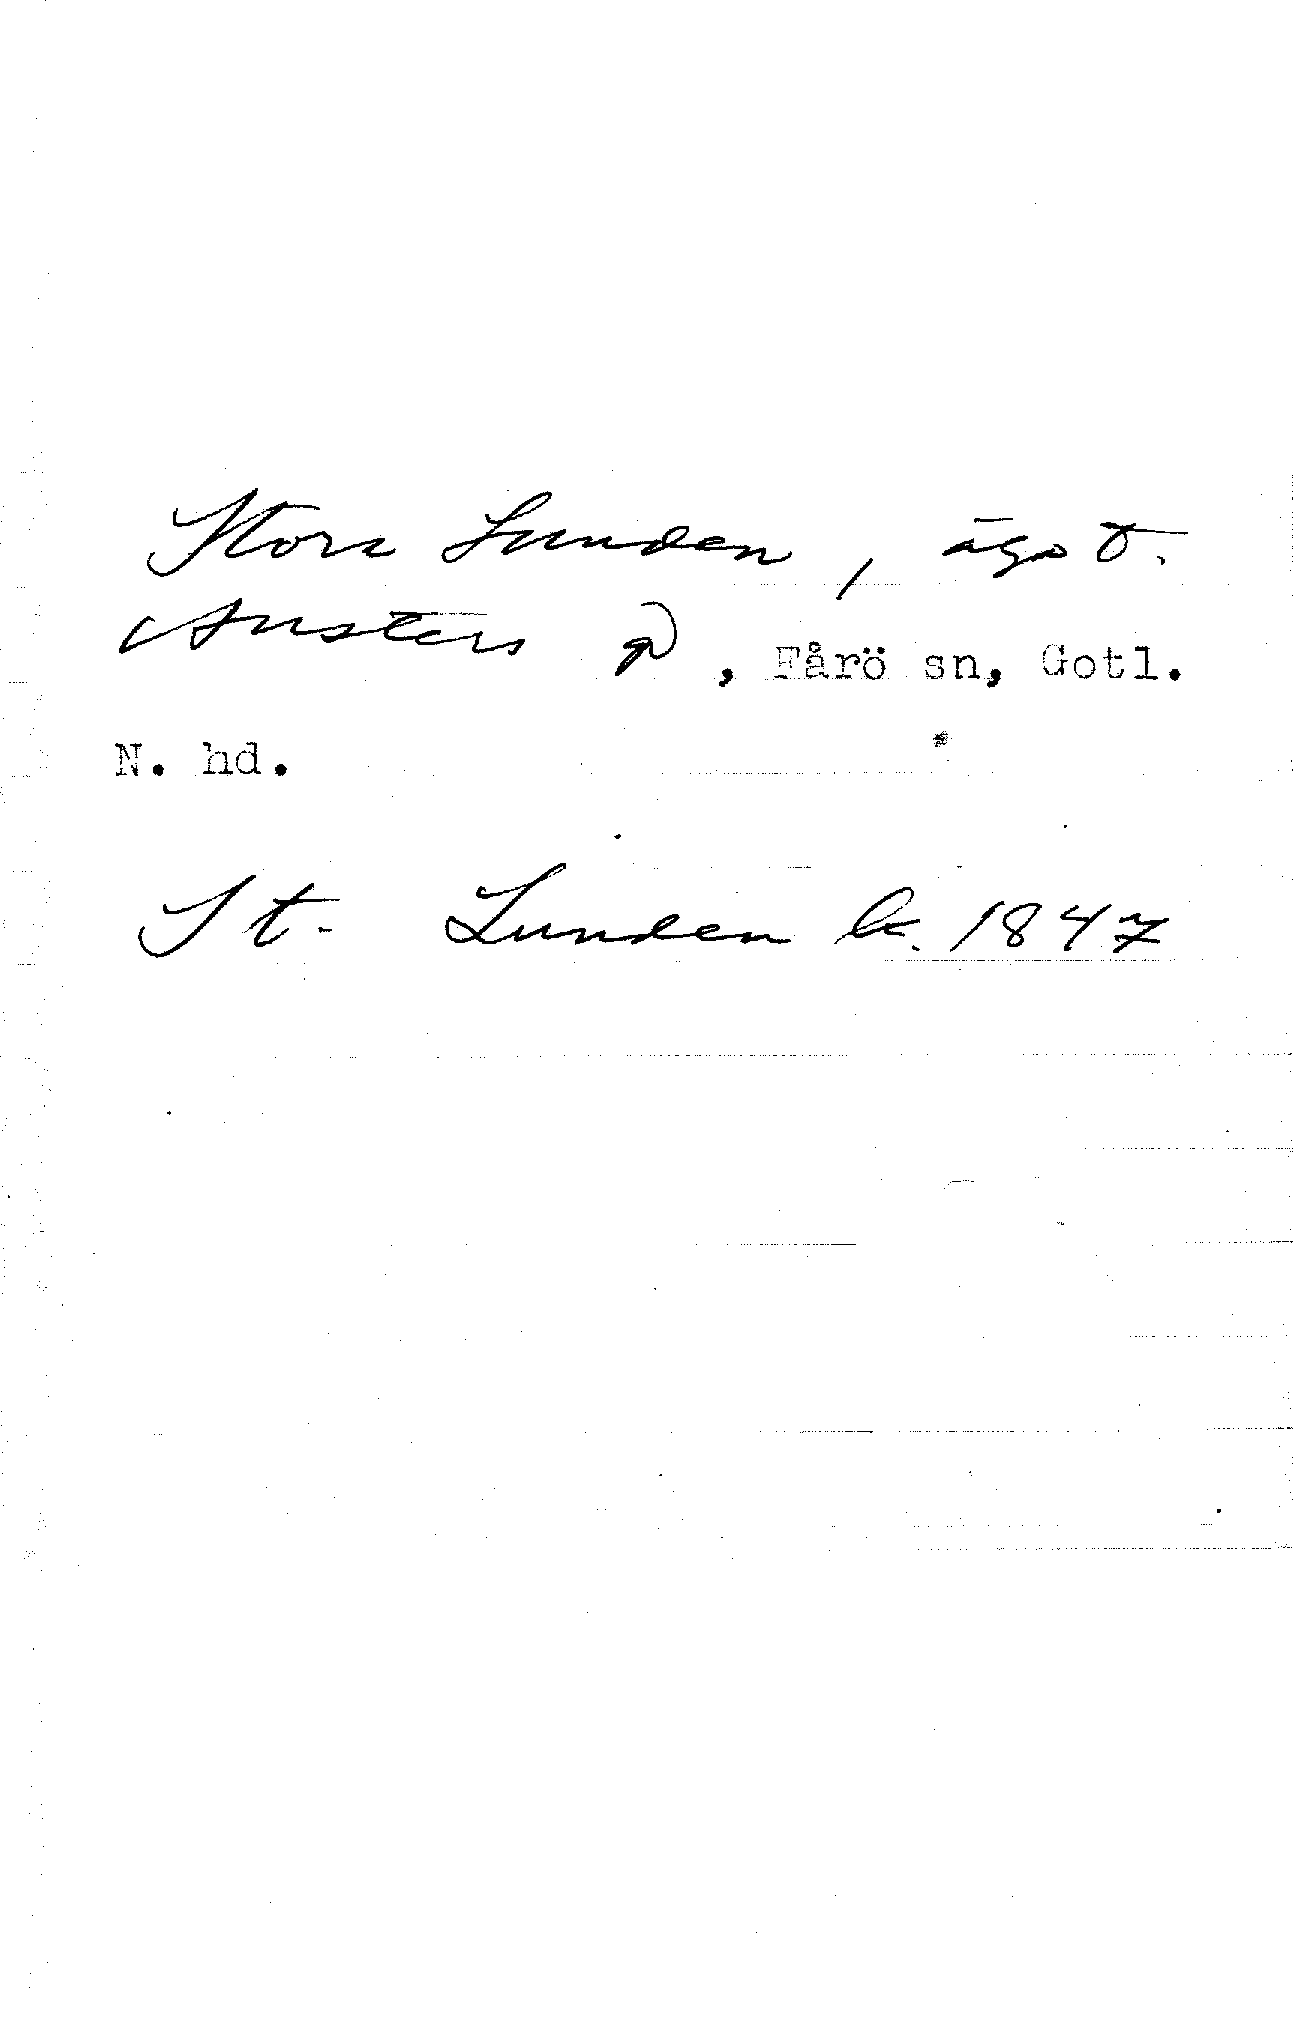 Stora Lunden, ägo t.
Austers gd, Fårö sn, Gotl.
N. hd.
St. Lunden k. 1847